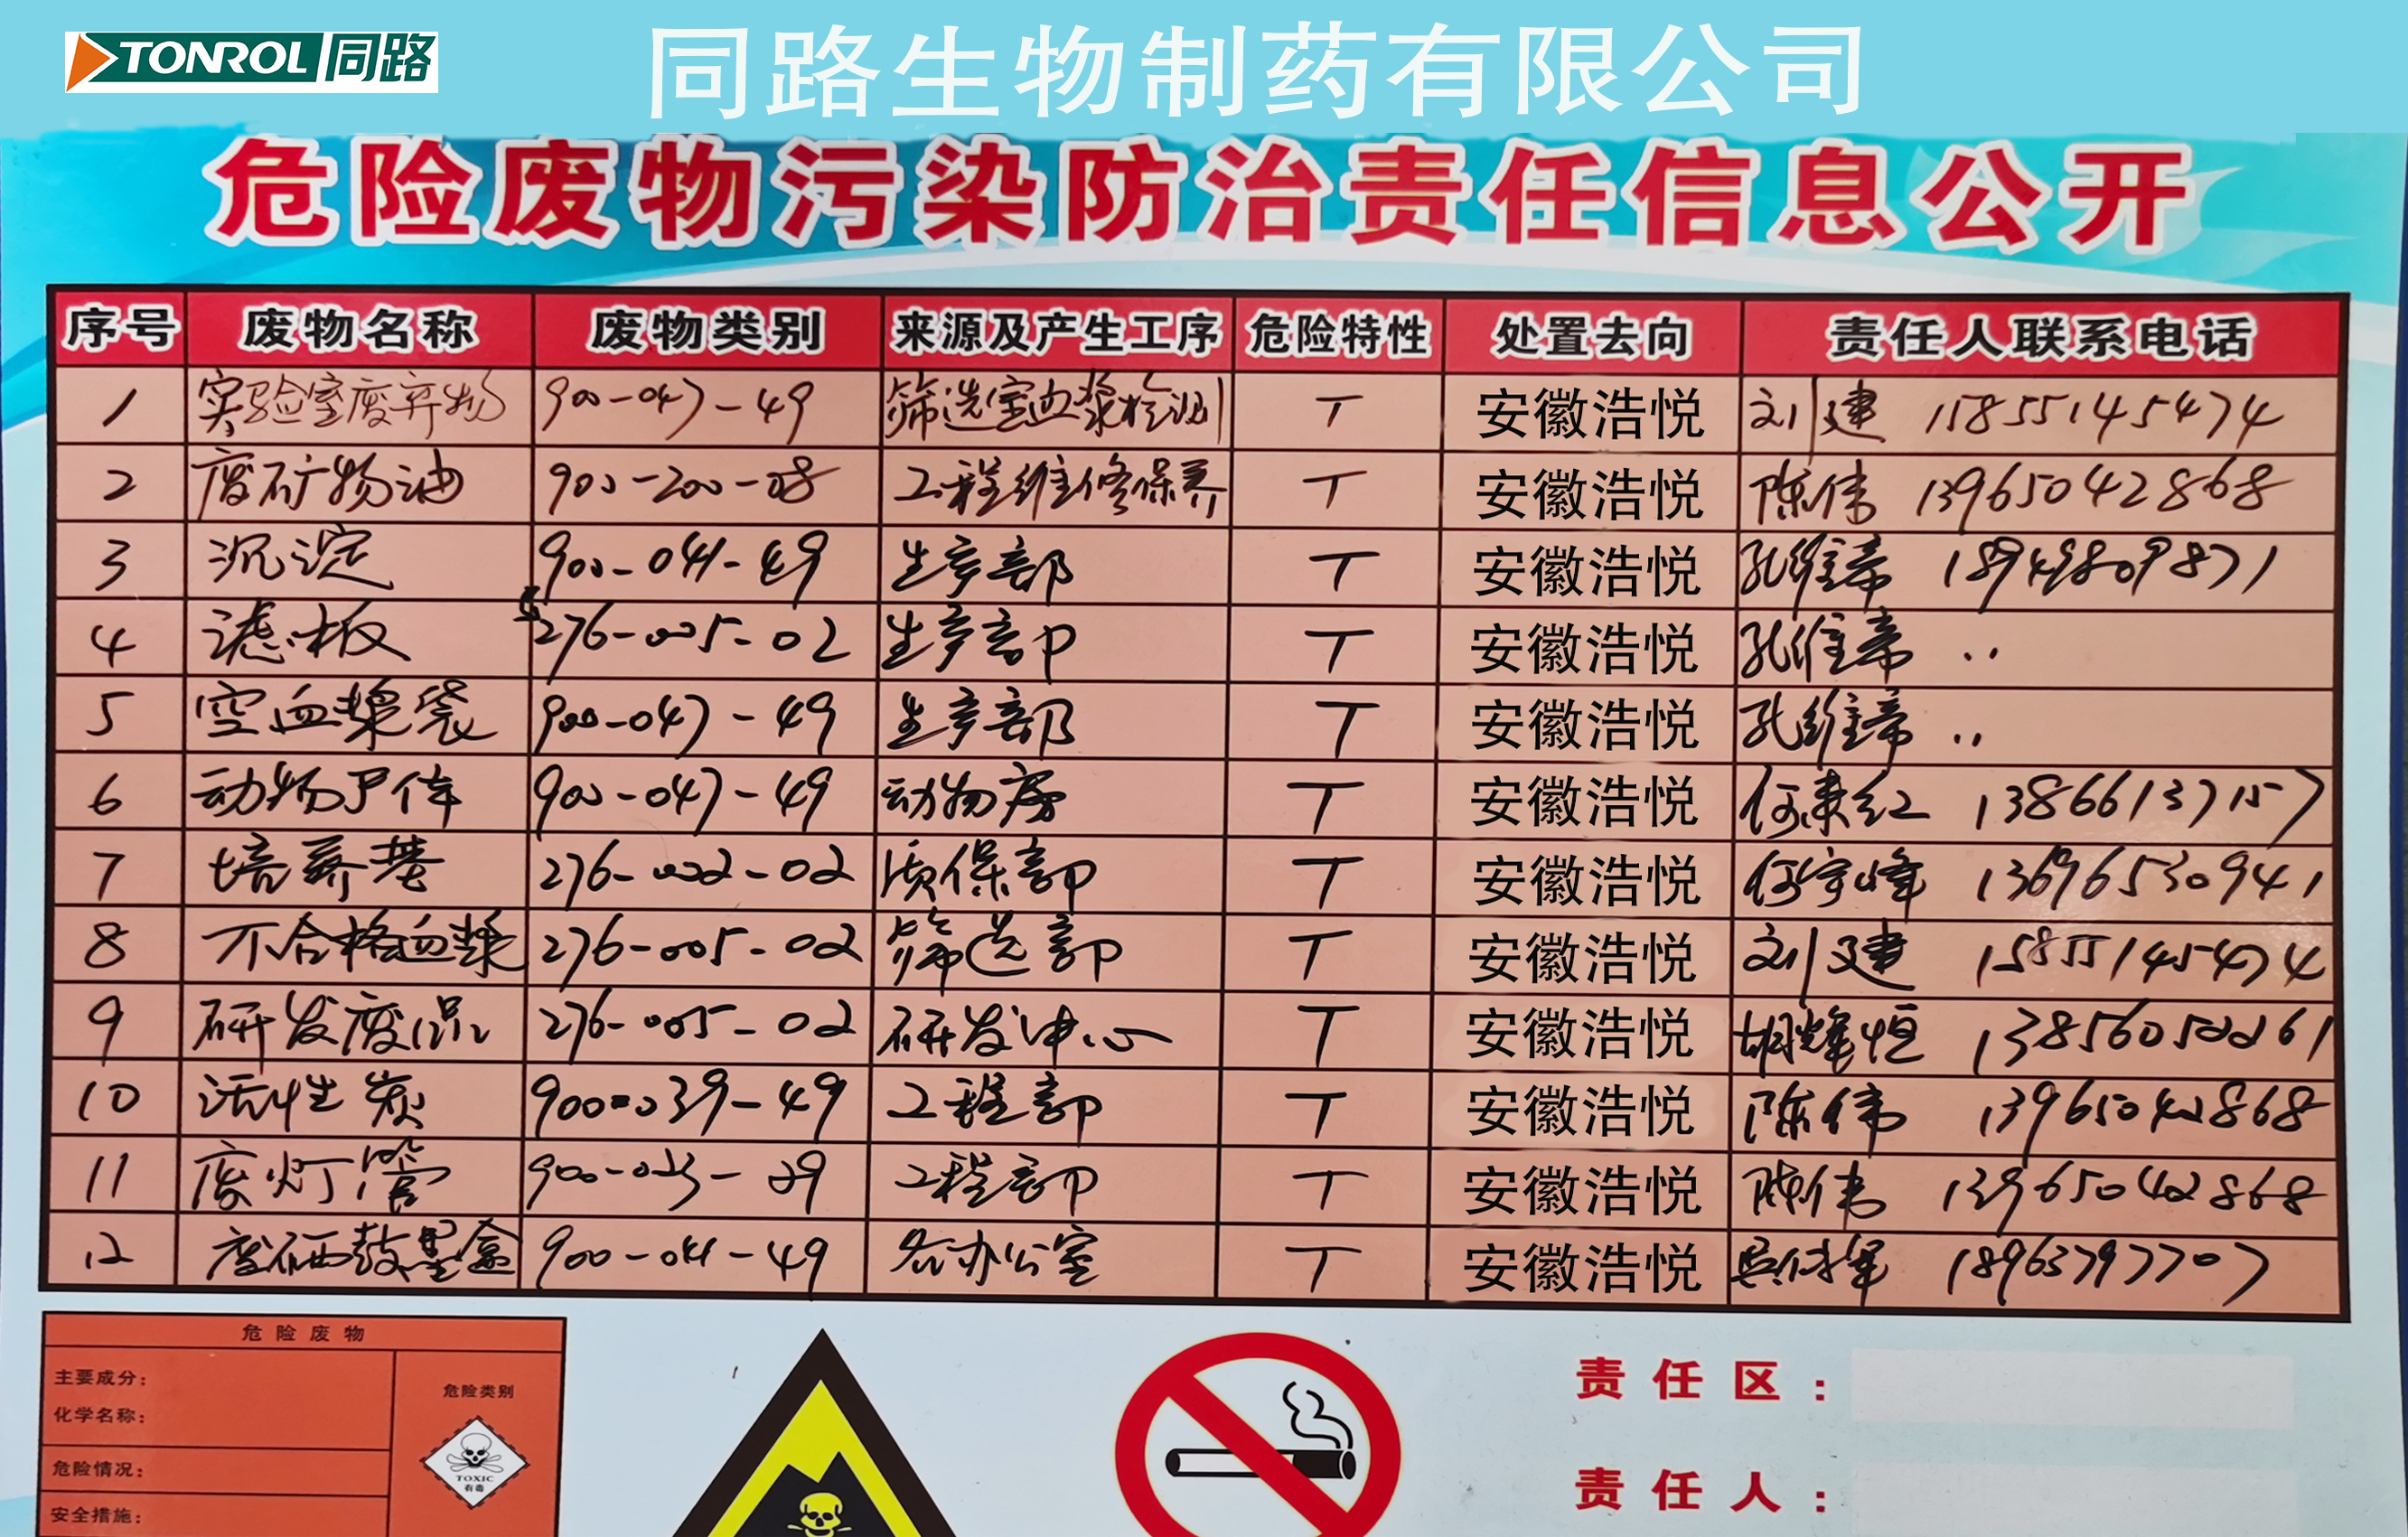 TONROL同路
同路生物制药有限公司
危险废物污染防治责任信息公开
序号 废物名称 废物类别 来源及产生工序 危险特性 处置去向 责任人联系电话
1 实验室废弃物 900-047-49 筛选室血浆检测 T 安徽浩悦 刘建 15855145474
2 废矿物油 900-200-08 工程维修保养 T 安徽浩悦 陈伟 13965042868
3 沉淀 900-041-49 生产部 T 安徽浩悦 孔维 18949809871
4 滤板 276-005-02 生产部 T 安徽浩悦 孔维 ··
5 空血浆袋 900-047-49 生产部 T 安徽浩悦 孔维 ··
6 动物尸体 900-047-49 动物房 T 安徽浩悦 何来红 13866137157
7 培养基 276-002-02 质保部 T 安徽浩悦 何宇峰 13696530941
8 不合格血浆 276-005-02 筛选部 T 安徽浩悦 刘建 15855145474
9 研发废品 276-005-02 研发中心 T 安徽浩悦 胡辉恒 13856052261
10 活性炭 900-039-49 工程部 T 安徽浩悦 陈伟 13965042868
11 废灯管 900-023-29 工程部 T 安徽浩悦 陈伟 13965042868
12 废硒鼓墨盒 900-041-49 各办公室 T 安徽浩悦 18963797707
危险废物
主要成分：
化学名称：
危险类别
TOXIC
有毒
危险情况：
安全措施：
责任区：
责任人：